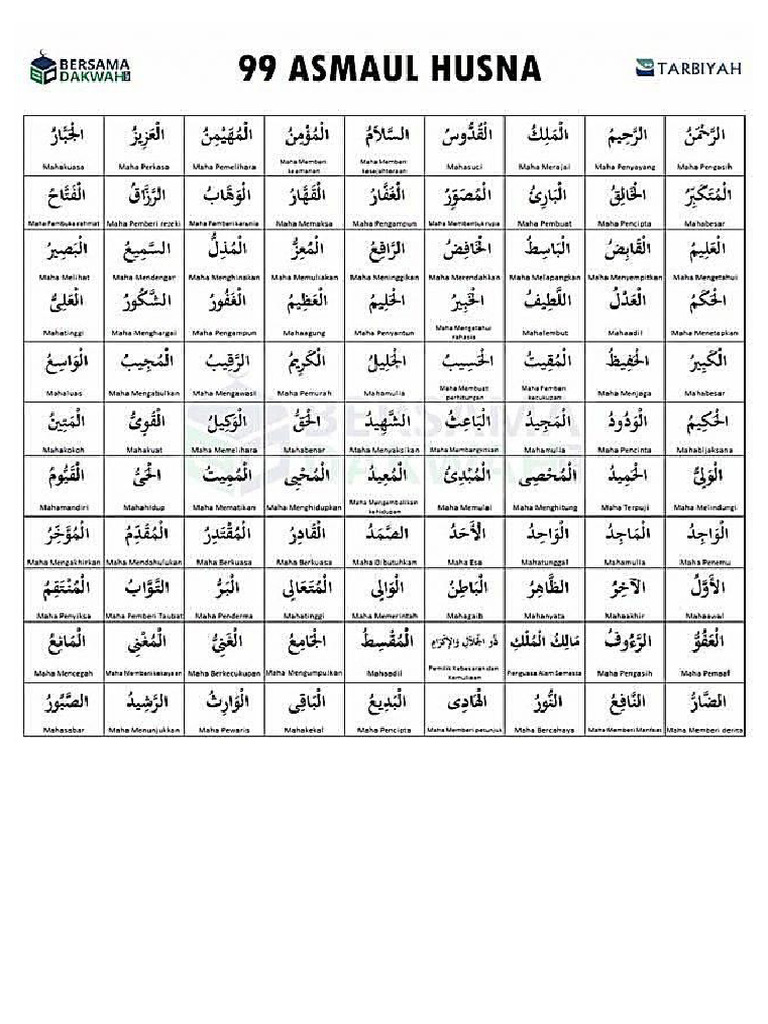 BERSAMA
DAKWAH
99 ASMAUL HUSNA
TARBIYAH
الرَّحْمَنُ
Maha Pengasih
الرَّحِيمُ
Maha Penyayang
الْمَلِكُ
Maha Merajai
الْقُدُّوسُ
Mahasuci
السَّلاَمُ
Maha Memberi
kesejahteraan
الْمُؤْمِنُ
Maha Memberi
keamanan
الْمُهَيْمِنُ
Maha Pemelihara
الْعَزِيزُ
Maha Perkasa
الْجَبَّارُ
Mahakuasa
الْمُتَكَبِّرُ
Mahabesar
الْخَالِقُ
Maha Pencipta
الْبَارِئُ
Maha Pembuat
الْمُصَوِّرُ
Maha Pembentuk rupa
الْغَفَّارُ
Maha Pengampun
الْقَهَّارُ
Maha Memaksa
الْوَهَّابُ
Maha Pemberi karunia
الرَّزَّاقُ
Maha Pemberi rezeki
الْفَتَّاحُ
Maha Pembuka rahmat
الْعَلِيمُ
Maha Mengetahui
الْقَابِضُ
Maha Menyempitkan
الْبَاسِطُ
Maha Melapangkan
الْخَافِضُ
Maha Merendahkan
الرَّافِعُ
Maha Meninggikan
الْمُعِزُّ
Maha Memuliakan
الْمُذِلُّ
Maha Menghinakan
السَّمِيعُ
Maha Mendengar
الْبَصِيرُ
Maha Melihat
الْحَكَمُ
Maha Menetapkan
الْعَدْلُ
Mahaadil
اللَّطِيفُ
Mahalembut
الْخَبِيرُ
Maha Mengetahui
rahasia
الْحَلِيمُ
Maha Penyantun
الْعَظِيمُ
Mahaagung
الْغَفُورُ
Maha Pengampun
الشَّكُورُ
Maha Menghargai
الْعَلِىُّ
Mahatinggi
الْكَبِيرُ
Mahabesar
الْحَفِيظُ
Maha Menjaga
الْمُقِيتُ
Maha Pemberi
kecukupan
الْحَسِيبُ
Maha Membuat
perhitungan
الْجَلِيلُ
Mahamulia
الْكَرِيمُ
Maha Pemurah
الرَّقِيبُ
Maha Mengawasi
الْمُجِيبُ
Maha Mengabulkan
الْوَاسِعُ
Mahaluas
الْحَكِيمُ
Mahabijaksana
الْوَدُودُ
Maha Pencinta
الْمَجِيدُ
Mahamulia
الْبَاعِثُ
Maha Membangkitkan
الشَّهِيدُ
Maha Menyaksikan
الْحَقُّ
Mahabenar
الْوَكِيلُ
Maha Memelihara
الْقَوِىُّ
Mahakuat
الْمَتِينُ
Mahakokoh
الْوَلِىُّ
Maha Melindungi
الْحَمِيدُ
Maha Terpuji
الْمُحْصِى
Maha Menghitung
الْمُبْدِئُ
Maha Memulai
الْمُعِيدُ
Maha Mengembalikan
kehidupan
الْمُحْيِى
Maha Menghidupkan
الْمُمِيتُ
Maha Mematikan
الْحَىُّ
Mahahidup
الْقَيُّومُ
Mahamandiri
الْوَاجِدُ
Maha Penemu
الْمَاجِدُ
Mahamulia
الْوَاحِدُ
Mahatunggal
الْأَحَدُ
Maha Esa
الصَّمَدُ
Maha Dibutuhkan
الْقَادِرُ
Maha Berkuasa
الْمُقْتَدِرُ
Maha Berkuasa
الْمُقَدِّمُ
Maha Mendahulukan
الْمُؤَخِّرُ
Maha Mengakhirkan
الْأَوَّلُ
Mahaawal
الْآخِرُ
Mahaakhir
الظَّاهِرُ
Mahanyata
الْبَاطِنُ
Mahagaib
الْوَالِى
Maha Memerintah
الْمُتَعَالِى
Mahatinggi
الْبَرُّ
Maha Penderma
التَّوَّابُ
Maha Pemberi Taubat
الْمُنْتَقِمُ
Maha Penyiksa
الْعَفُوُّ
Maha Pemaaf
الرَّءُوفُ
Maha Pengasih
مَالِكُ الْمُلْكِ
Penguasa Alam Semesta
ذُو الْجَلاَلِ وَالْإِكْرَامِ
Pemilik Kebesaran dan
Kemuliaan
الْمُقْسِطُ
Mahaadil
الْجَامِعُ
Maha Mengumpulkan
الْغَنِىُّ
Maha Berkecukupan
الْمُغْنِى
Maha Memberi kekayaan
الْمَانِعُ
Maha Mencegah
الضَّارُّ
Maha Memberi derita
النَّافِعُ
Maha Memberi Manfaat
النُّورُ
Maha Bercahaya
الْهَادِى
Maha Memberi petunjuk
الْبَدِيعُ
Maha Pencipta
الْبَاقِى
Mahakekal
الْوَارِثُ
Maha Pewaris
الرَّشِيدُ
Maha Menunjukkan
الصَّبُورُ
Mahasabar
BERSAMA
DAKWAH